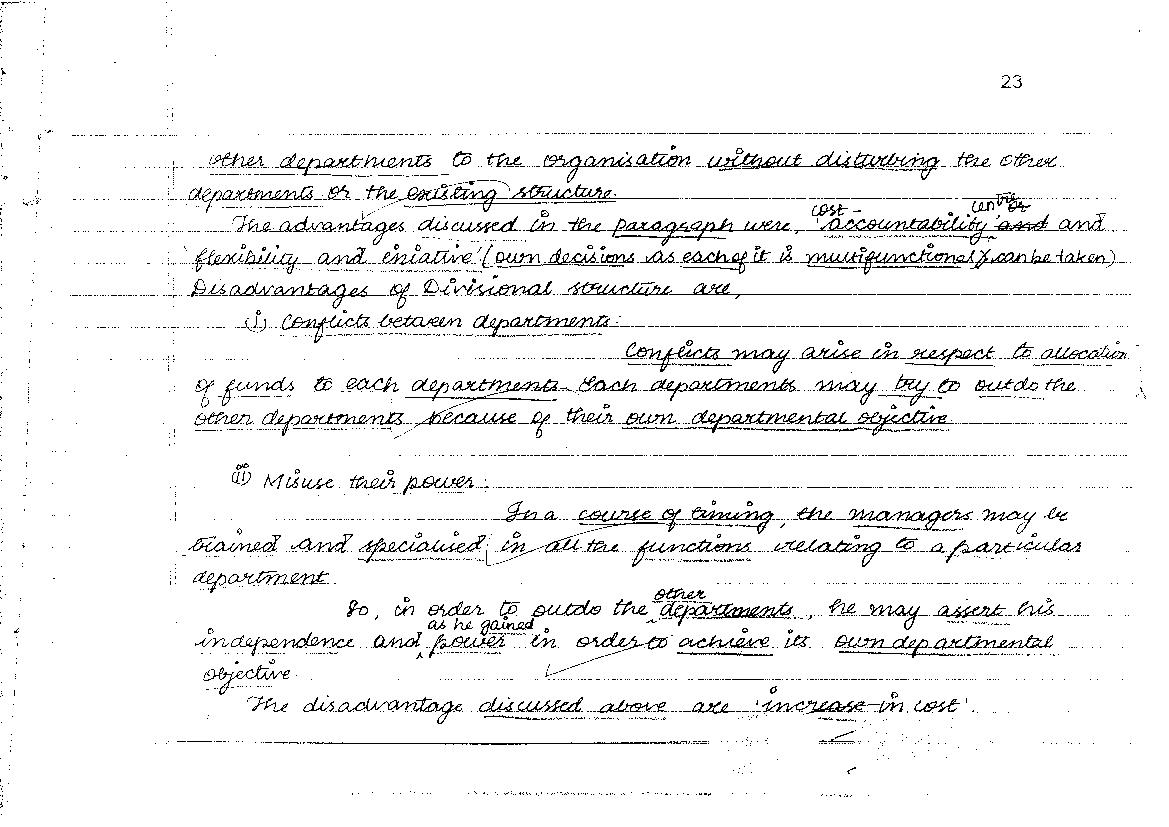 23
other departments to the organisation without disturbing the other
departments or the existing structure.
The advantages discussed in the paragraph were, 'cost-accountability centre and and
flexibility and eniative' (own decisions as each of it is multifunctional, can be taken)
Disadvantages of Divisional structure are,
(i) Conflicts between departments:
Conflicts may arise in respect to allocation
of funds to each departments. Each departments may try to outdo the
other departments because of their own departmental objective
(ii) Misuse their power:
In a course of timing, the managers may be
trained and specialised in all the functions relating to a particular
department.
So, in order to outdo the other departments, he may assert his
independence and as he gained power in order to achieve its own departmental
objective.
The disadvantage discussed above are 'increase in cost'.